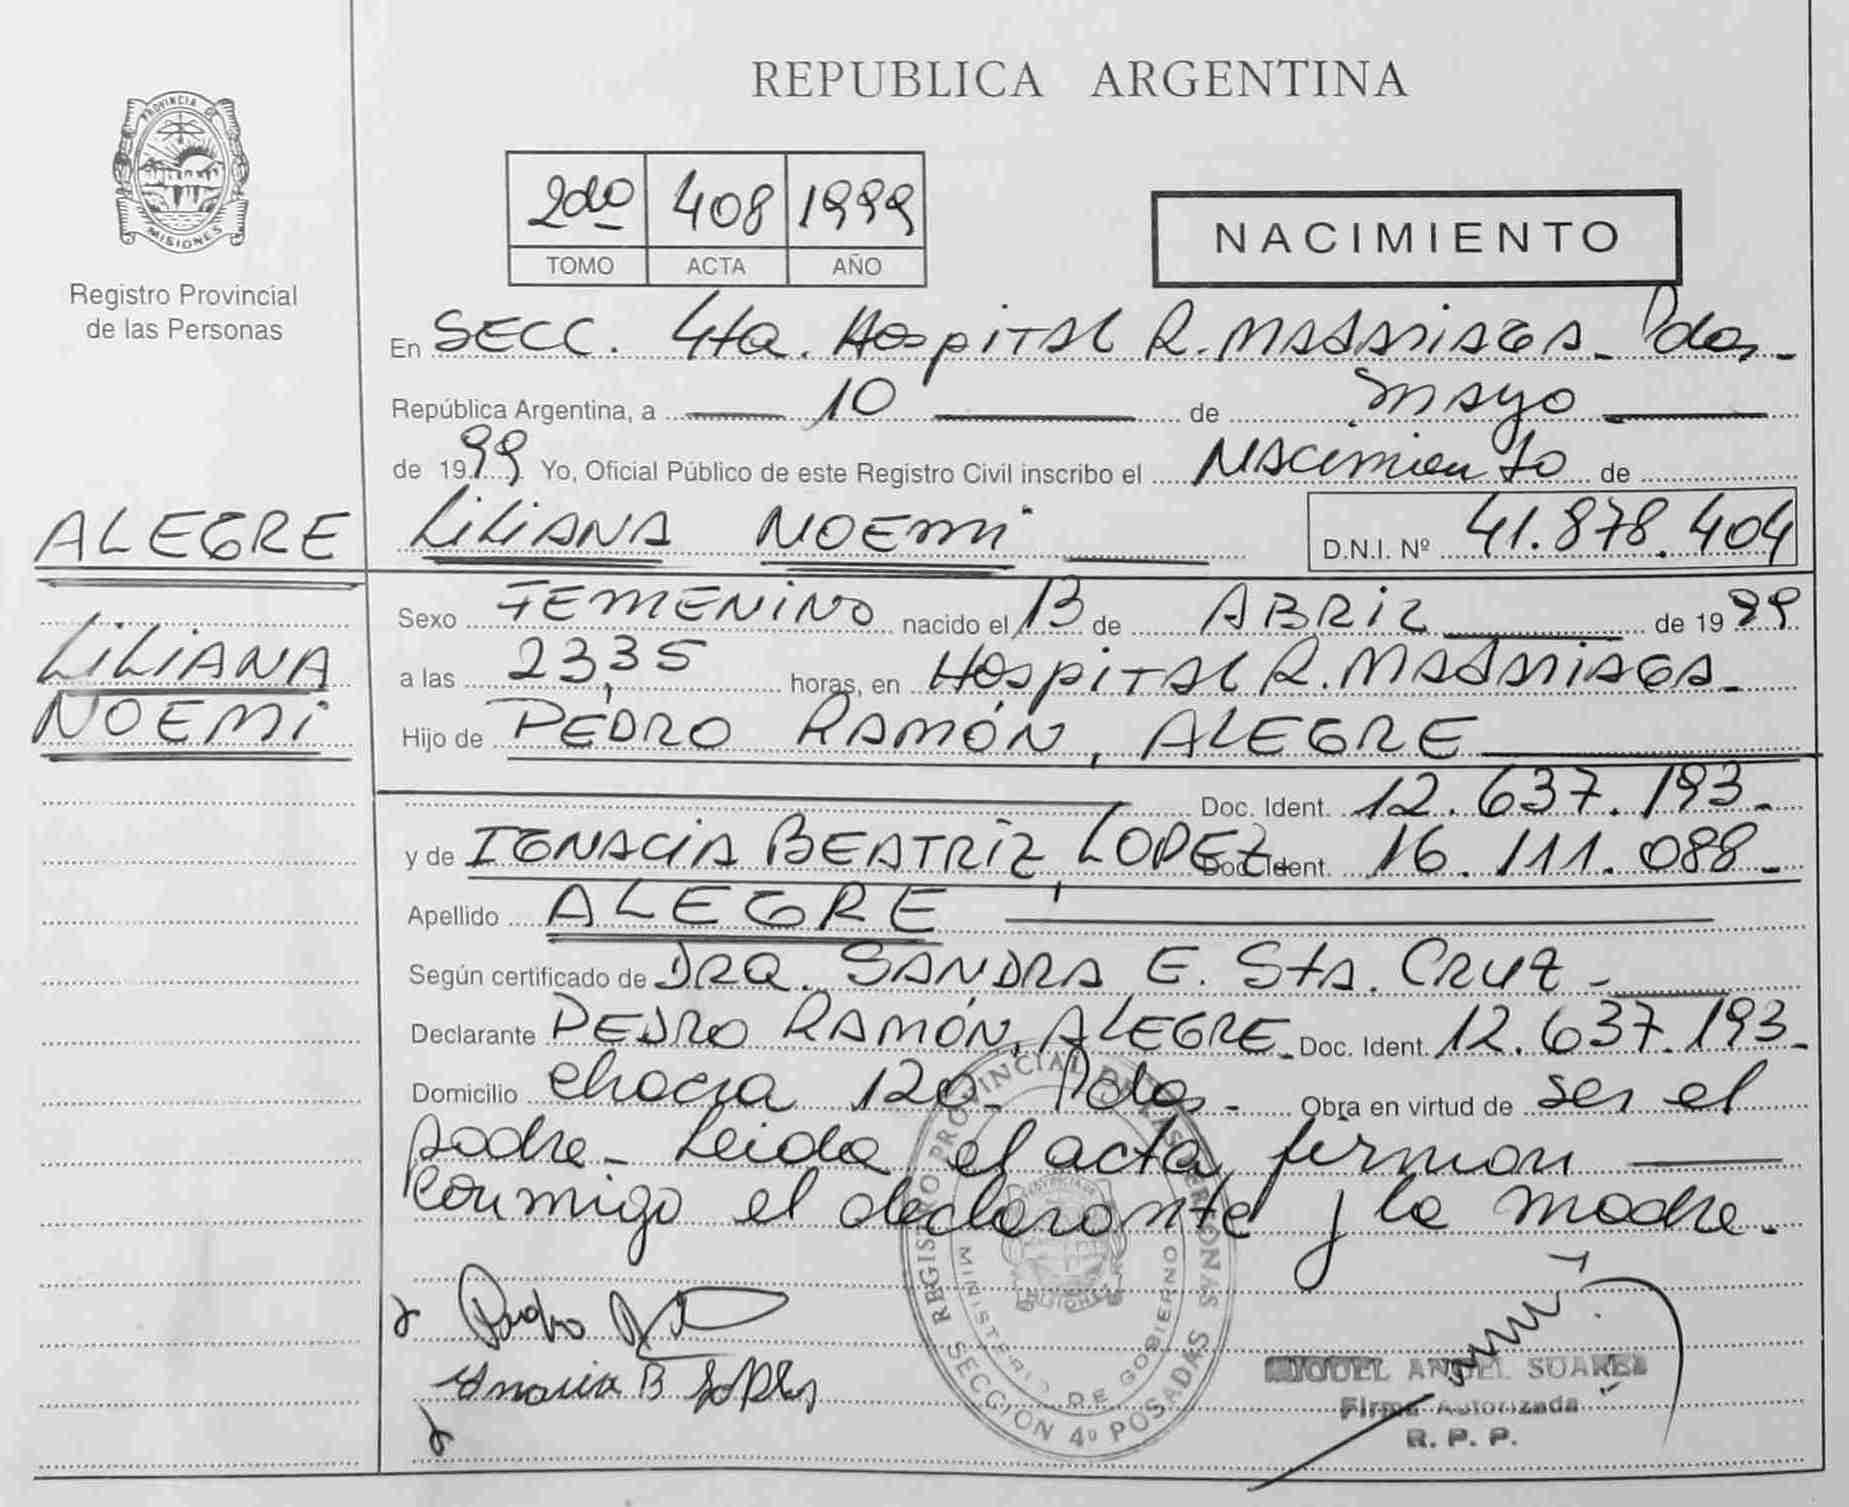 REPUBLICA ARGENTINA
PROVINCIA DE
MISIONES
Registro Provincial
de las Personas
2do 408 1999
TOMO ACTA AÑO
NACIMIENTO
En SECC. 4ta. Hospital R. Madariaga - Pdas -
República Argentina, a 10 de mayo
de 1999 Yo, Oficial Público de este Registro Civil inscribo el Nacimiento de
ALEGRE LILIANA NOEMI D.N.I. Nº 41.878.404
LILIANA
NOEMI
Sexo FEMENINO nacido el 13 de ABRIL de 1999
a las 23,35 horas, en Hospital R. Madariaga -
Hijo de PEDRO RAMÓN, ALEGRE
Doc. Ident. 12.637.193 -
y de IGNACIA BEATRIZ, LOPEZ Doc. Ident. 16.111.088 -
Apellido ALEGRE
Según certificado de DRA. SANDRA E. Sta. CRUZ -
Declarante PEDRO RAMÓN, ALEGRE - Doc. Ident. 12.637.193 -
Domicilio chacra 120 - Pdas - Obra en virtud de ser el
padre - Leida el acta, firman
conmigo el declarante y la madre -
REGISTRO PROVINCIAL DE LAS PERSONAS
MINISTERIO DE GOBIERNO
SECCION 4º POSADAS
B Lopez
MIGUEL ANGEL SUAREZ
Firma Autorizada
R. P. P.